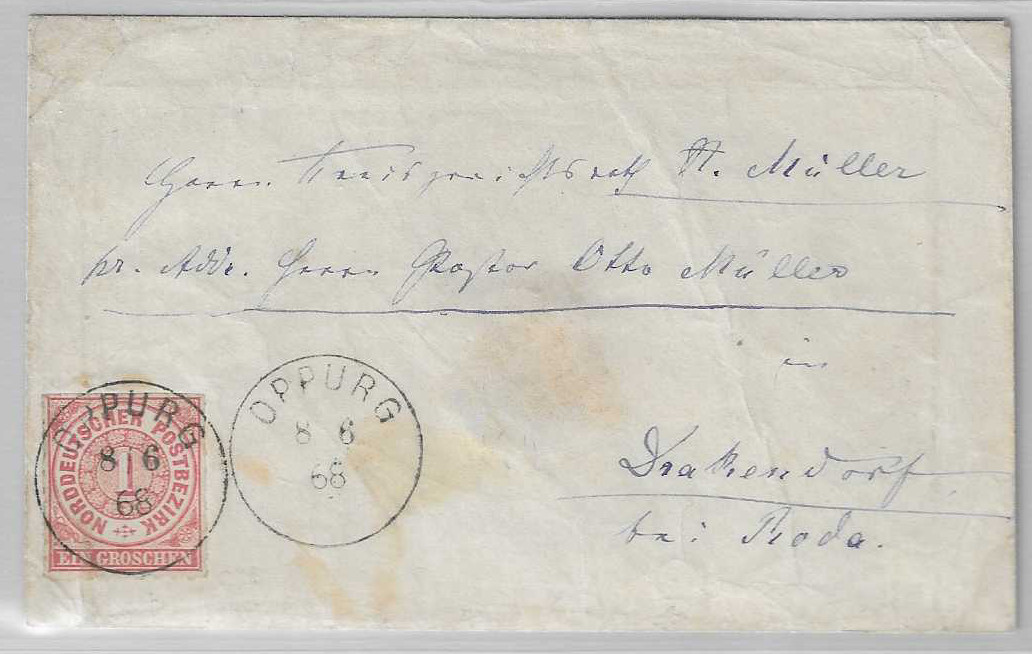 Herrn Kreisgerichtsrath A. Müller
pr. Addr. Herrn Pastor Otto Müller
in
Drakendorf
bei Roda.
OPPURG
8 6
68
NORDDEUTSCHER POSTBEZIRK
1
EIN GROSCHEN
OPPURG
8 6
68